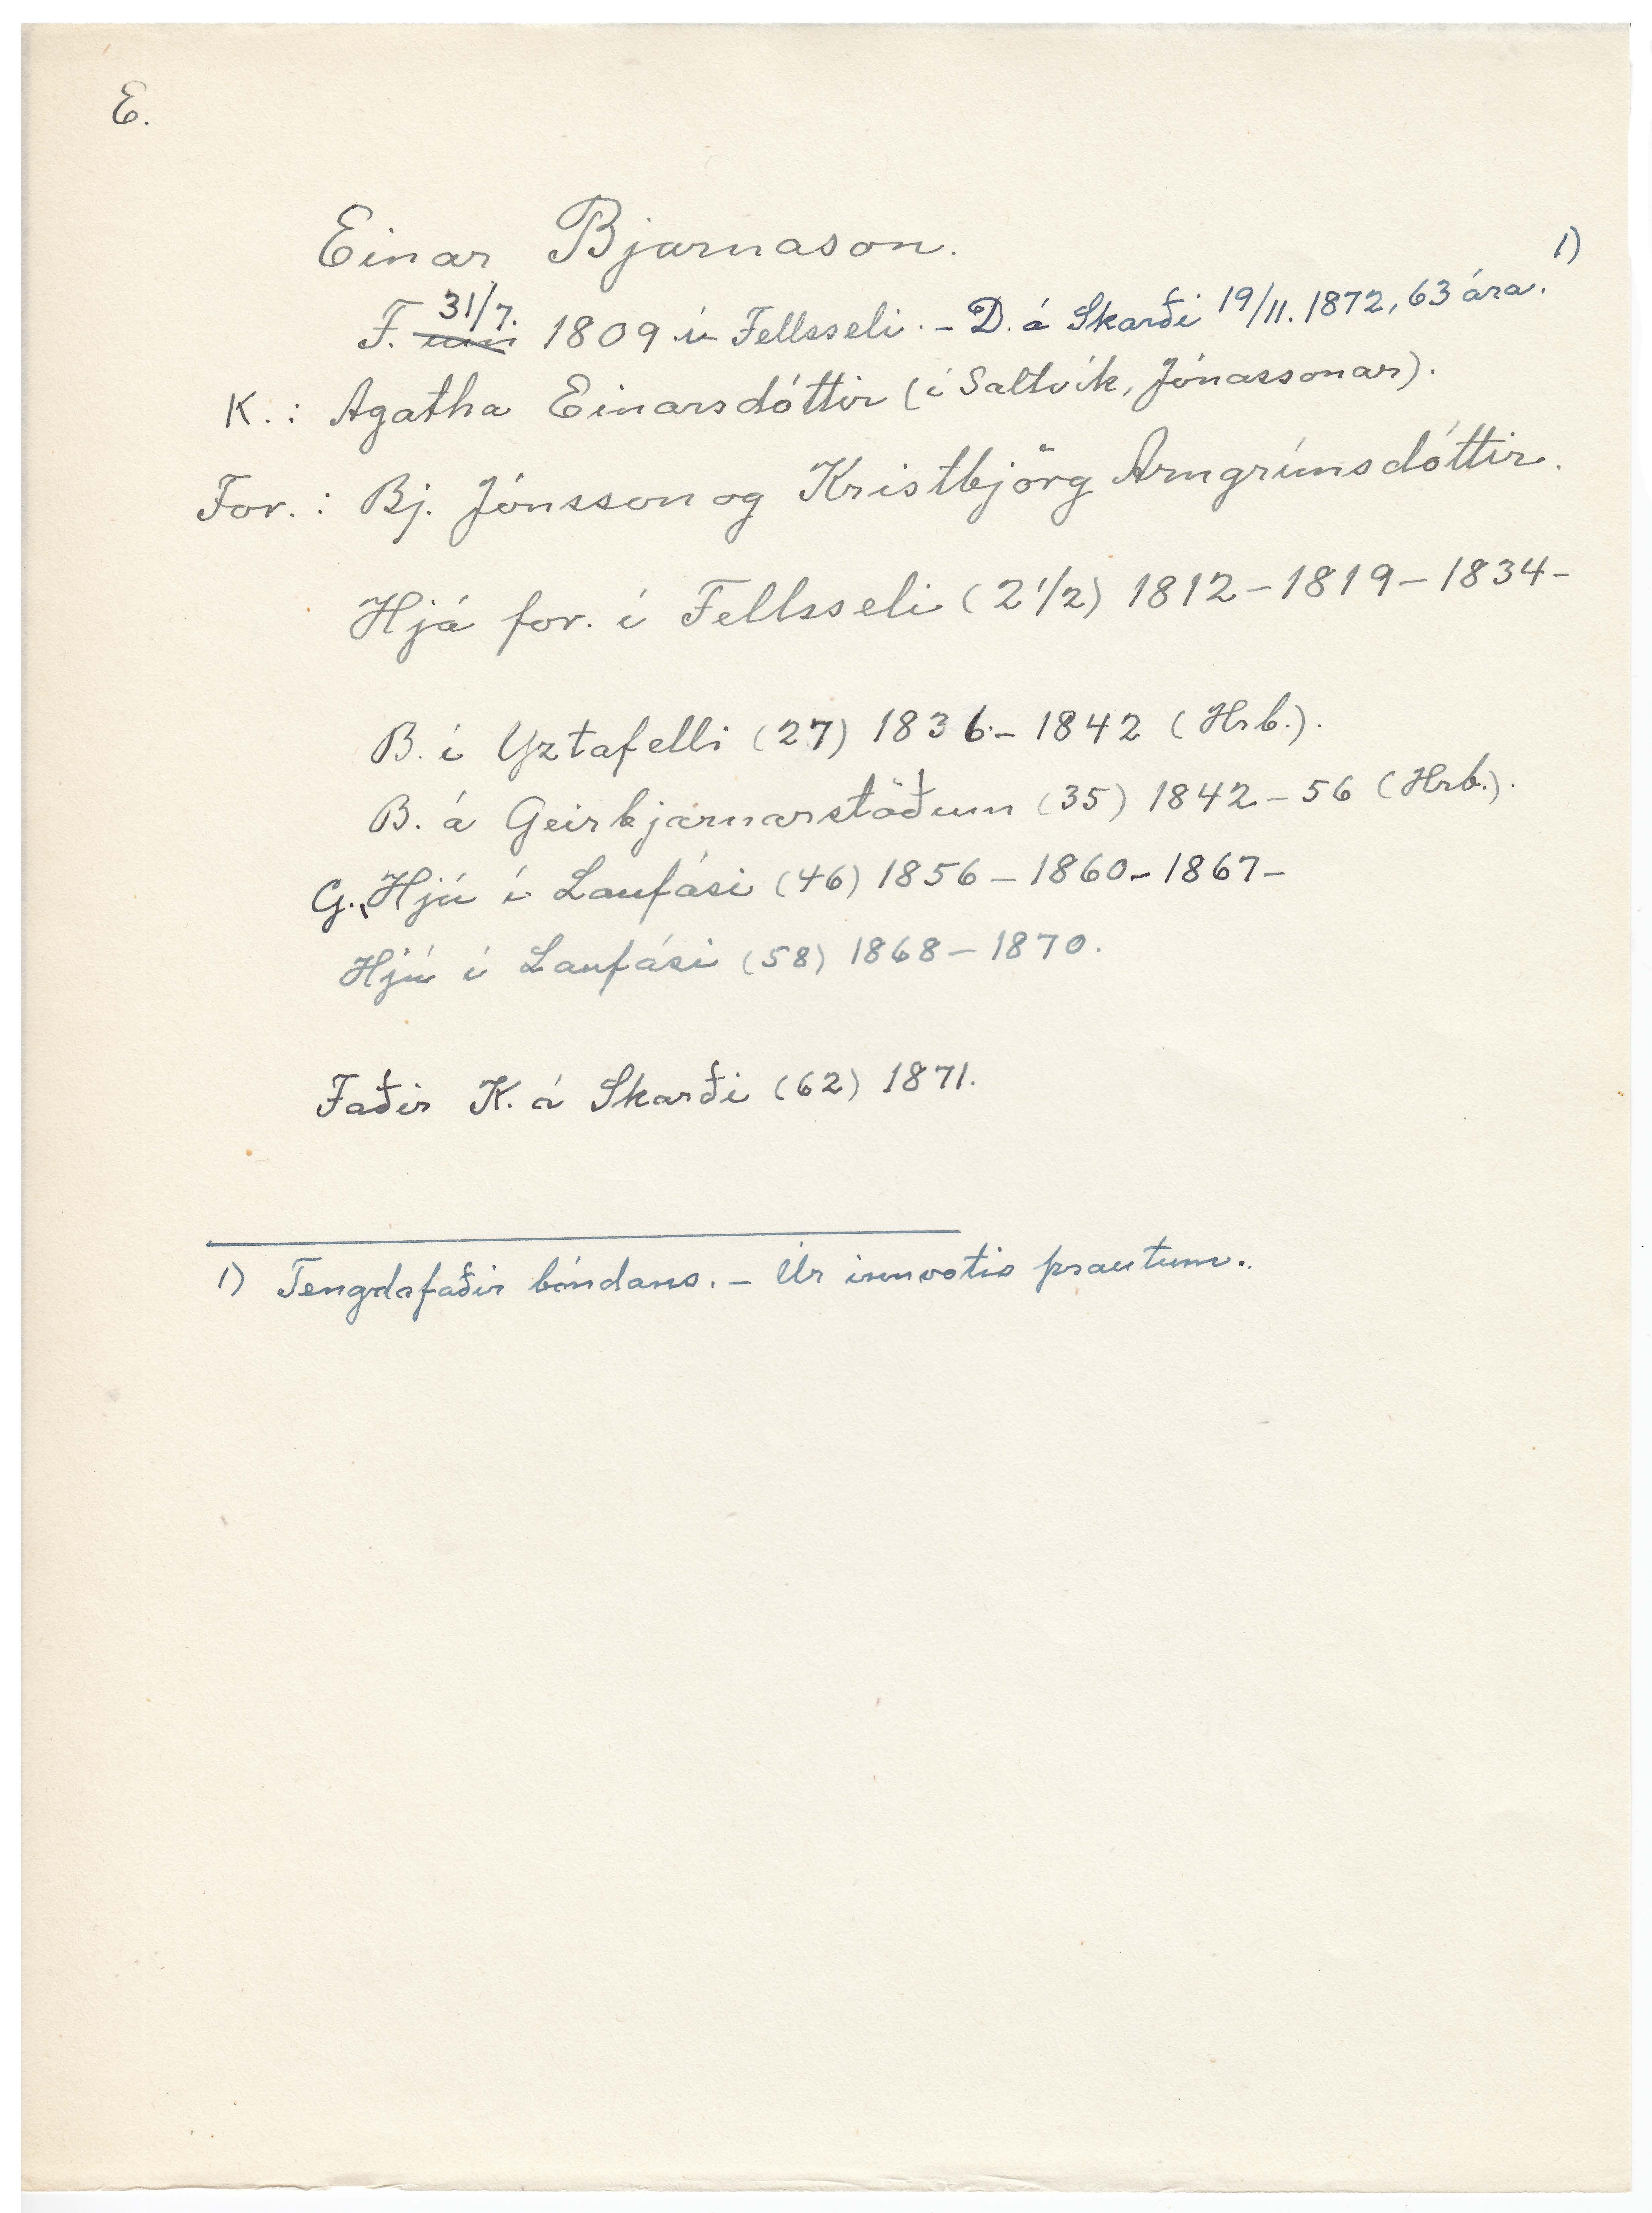 E.
Einar Bjarnason.
F. 31/7. 1809 í Fellsseli. - D. á Skarði 19/11. 1872, 63 ára. 1)
K.: Agatha Einarsdóttir (í Saltvík, Jónassonar).
For.: Bj. Jónsson og Kristbjörg Arngrímsdóttir.
Hjá for. í Fellsseli (2 1/2) 1812 - 1819 - 1834 -
B. í Yztafelli (27) 1836 - 1842 (Hrb.).
B. á Geirbjarnarstöðum (35) 1842 - 56 (Hrb.).
G., Hjú í Laufási (46) 1856 - 1860 - 1867 -
Hjú í Laufási (58) 1868 - 1870.
Faðir K. á Skarði (62) 1871.
1) Tengdafaðir bóndans. - Úr innvotis þrautum.